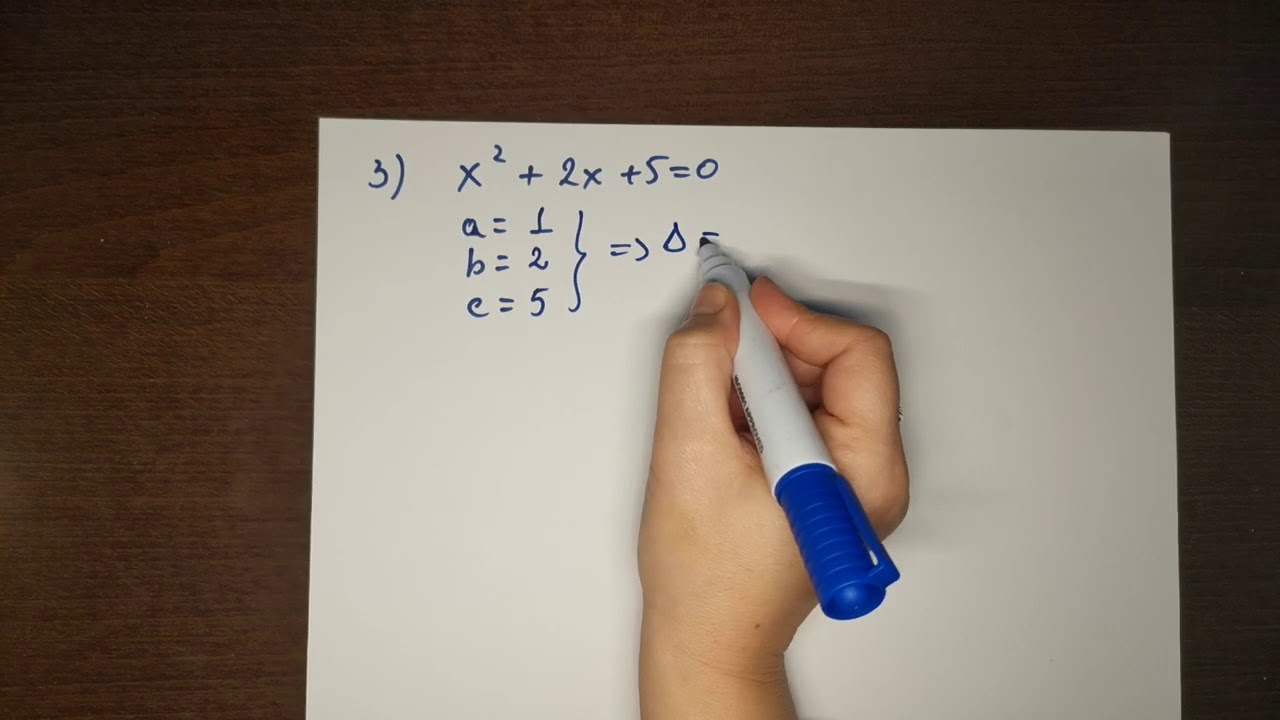 3) x² + 2x + 5 = 0
a = 1
b = 2 } => Δ =
c = 5